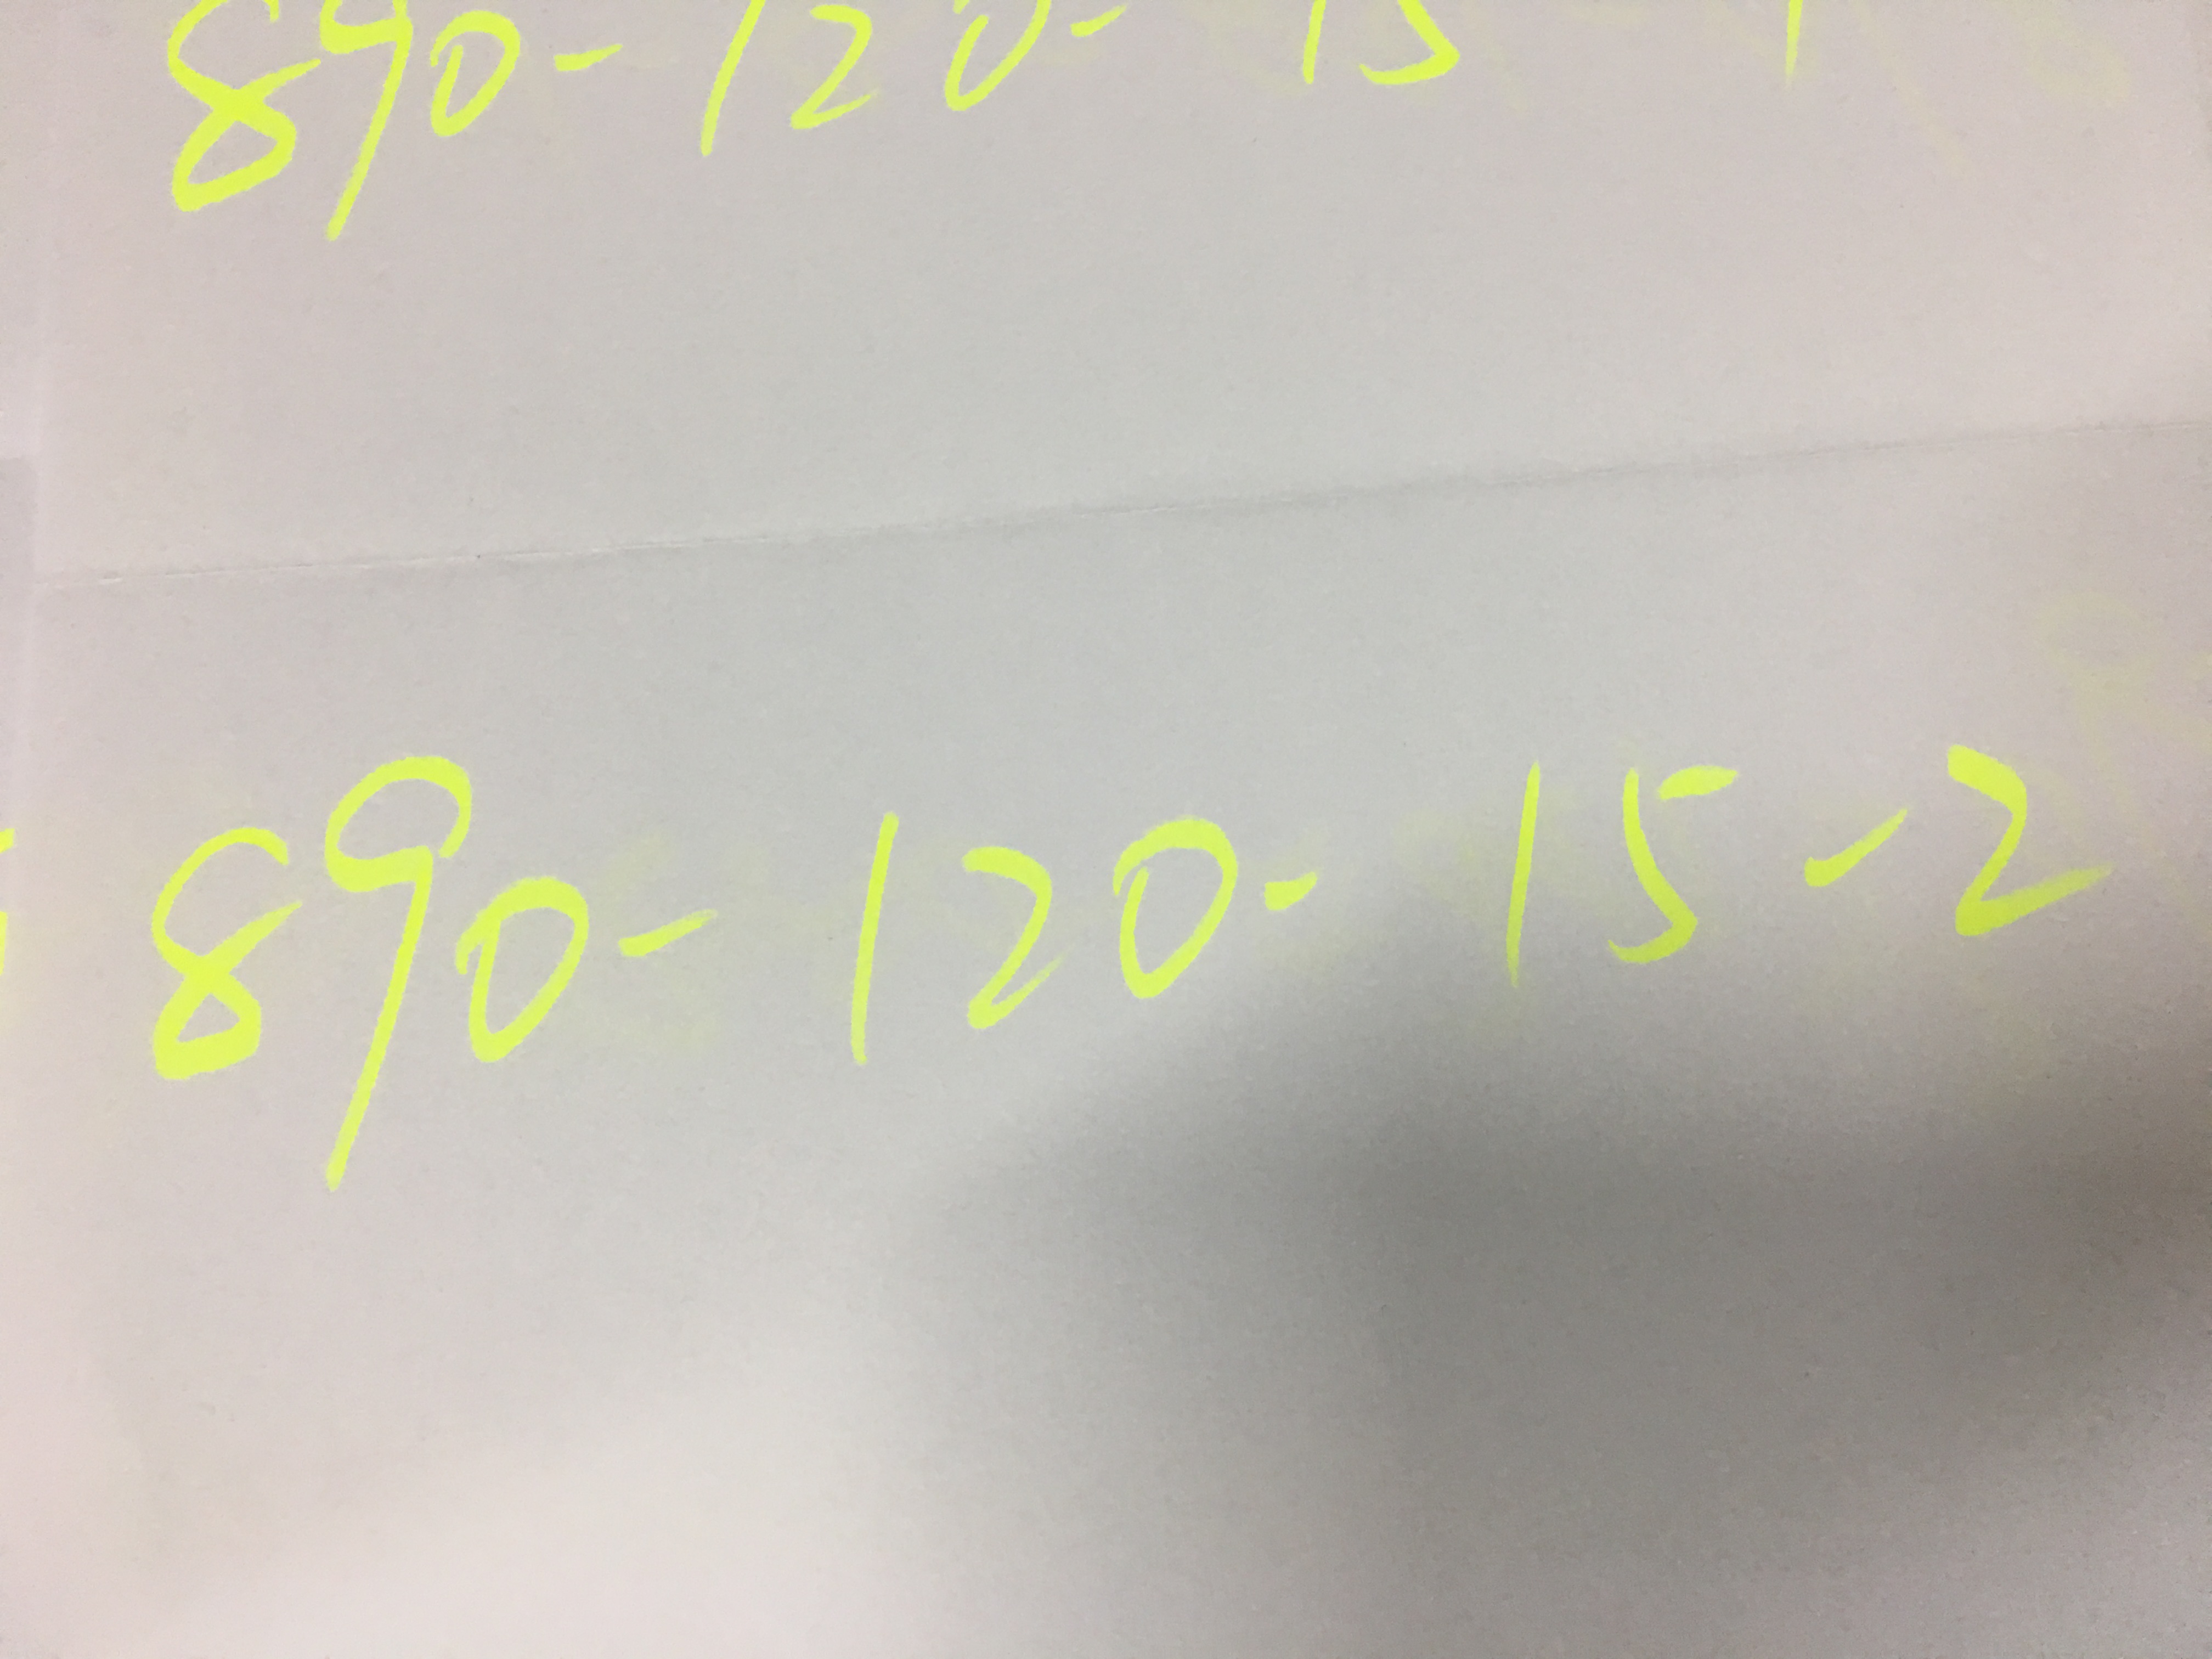 890-120-15-1
890-120-15-2